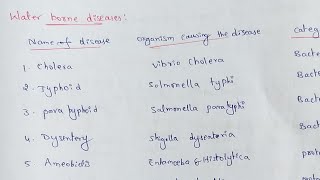 Water borne diseases:
Name of disease organism causing the disease Categ
1. Cholera Vibrio Cholera Bacte
2. Typhoid Salmonella typhi Bacte
3. para typhoid Salmonella paratyphi Bacte
4. Dysentery Shigella dysenteria Bacte
5 Ameobiasis Entamoeba Histolytica proto